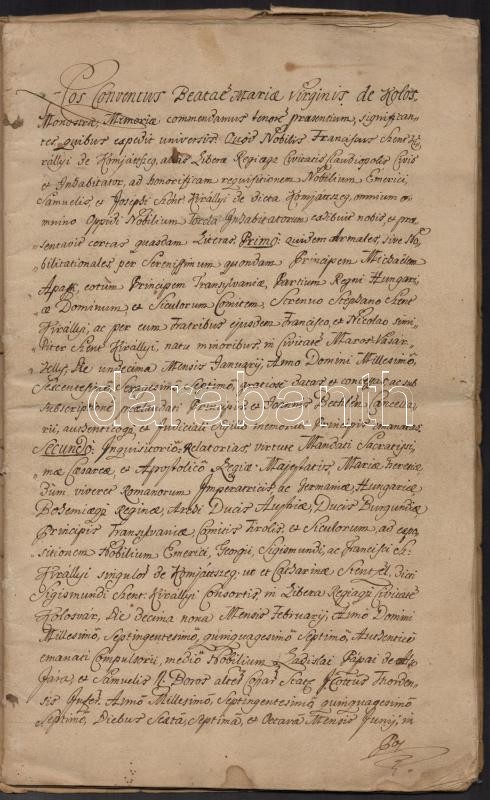 Nos Conventus Beatae Mariae Virginis de Kolos
Monostra, Memoriae commendamus tenore praesentium, significan-
tes, quibus expedit universis. Quod Nobilis Franciscus Szent Ki-
rállyi de Komjátszeg, alias Libera Regiaque Civitatis Claudiopolis Civis
et Inhabitator, ad honorificam requisitionem Nobilium Emerici,
Samuelis, et Josephi Szent Királlyi de dicta Komjátszeg, omnium o-
mnino Oppidi Nobilium Torda Inhabitatorum exhibuit nobis et prae
sentavit certas quasdam Literas, Primo: quidem Armales, sive No-
bilitationales, per Serenissimum quondam Principem Michaelem
Apaffi, eotum Principem Transylvaniae, Partium Regni Hungari-
ae Dominum, et Siculorum Comitem, Strenuo Stephano Szent
Királlyi, ac per eum Fratribus ejusdem Francisco, et Nicolao simi-
liter Szent Királlyi, natu minoribus, in Civitate Maros Vásár-
helly, Die undecima Mensis Januarij, Anno Domini Millesimo,
Sexcentesimo, Septimo, gratiose datas et concessas, ac sub
subscriptione praelaudati Principis et Joannis Bethlen Cancella-
rii, authenticoque, et pendenti Sigillo memorati Principis
Secundo: Inquisitorio-Relatorias, virtute Mandati Sacratissi-
mae Caesareae et Apostolico Regiae Majestatis, Mariae Theresiae
Romanorum Imperatricis, ac Germaniae, Hungariae
Bohemiaeque Reginae, Archi Ducis Austriae, Ducis Burgundiae
Principis Transylvaniae, Comitis Tirolis, et Siculorum, ad expo
sitionem Nobilium Emerici, Georgii, Sigismundi, ac Francisci Sz.
Királlyi singulor de Komjátszeg, ut et Catharinae Szent Él, dicti
Sigismundi Szent Királlyi consortis, in Libera Regiaque Civitate
Kolosvár, Die decima nona Mensis Februarij, Anno Domini
Millesimo, Septingentesimo, quinquagesimo Septimo, Authentice
emanati Compulsorii, medio Nobilium Ladislai Pápai de Al-
Jara, et Samuelis N. Doros
Anno Millesimo, Septingentesimo quinquagesimo
Septimo, Diebus Sexta, Septima, et Octava Mensis Junij, in
darabanth